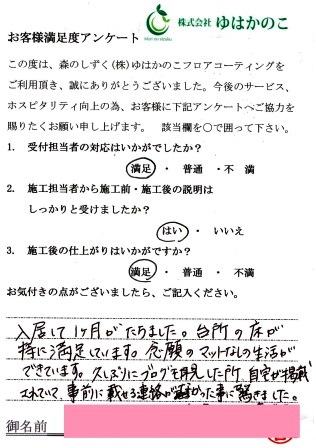 株式会社 ゆはかのこ
Mori no shizuku
お客様満足度アンケート
この度は、森のしずく(株)ゆはかのこフロアコーティングを
ご利用頂き、誠にありがとうございました。今後のサービス、
ホスピタリティ向上の為、お客様に下記アンケートへご協力を
賜りたくお願い申し上げます。 該当欄を〇で囲って下さい。
1. 受付担当者の対応はいかがでしたか？
満足 ・ 普通 ・不 満
2. 施工担当者から施工前・施工後の説明は
しっかりと受けましたか？
はい ・ いいえ
3. 施工後の仕上がりはいかがですか？
満足 ・ 普通 ・ 不満
お気付きの点がございましたら、ご記入ください。
入居して1ヶ月がたちました。台所の床が
特に満足しています。念願のマットなしの生活が
できています。久しぶりにブログを拝見した所、自宅が掲載
されていて、事前に載せる連絡が無かった事に驚きました。
御名前